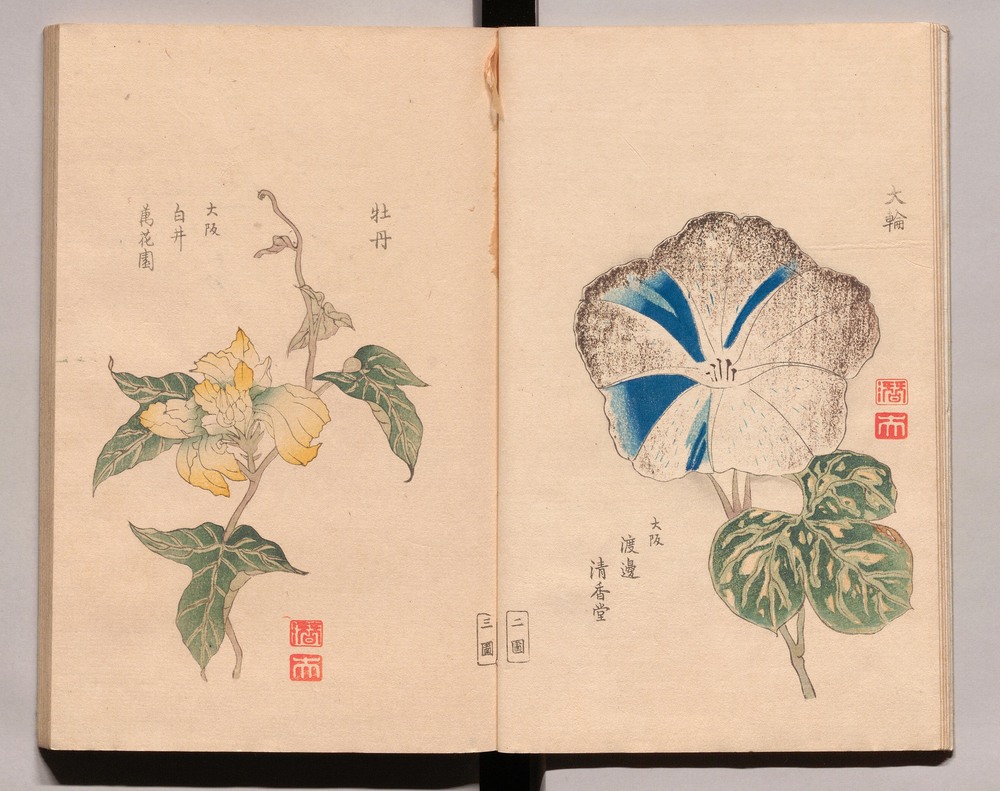 大輪
大阪
渡邊
清香堂
二圖
牡丹
大阪
白井
萬花園
三圖